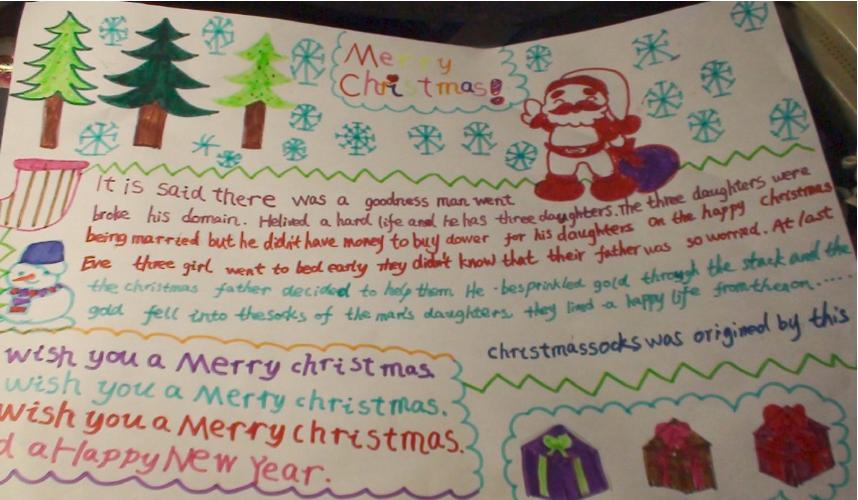 Merry
Christmas!
It is said there was a goodness man went
broke his domain. Helived a hard life and he has three daughters. The three daughters were
being married but he didn't have money to buy dower for his daughters on the happy christmas
Eve three girl went to bed early They didn't know that their father was so worried. At last
the christmas father decided to help them. He besprinkled gold through the stack and the
gold fell into thesocks of the man's daughters. they lived a happy life fromtheon......
christmassocks was origined by this
wish you a Merry christmas.
wish you a Merry christmas.
wish you a Merry christmas.
a Happy New Year.